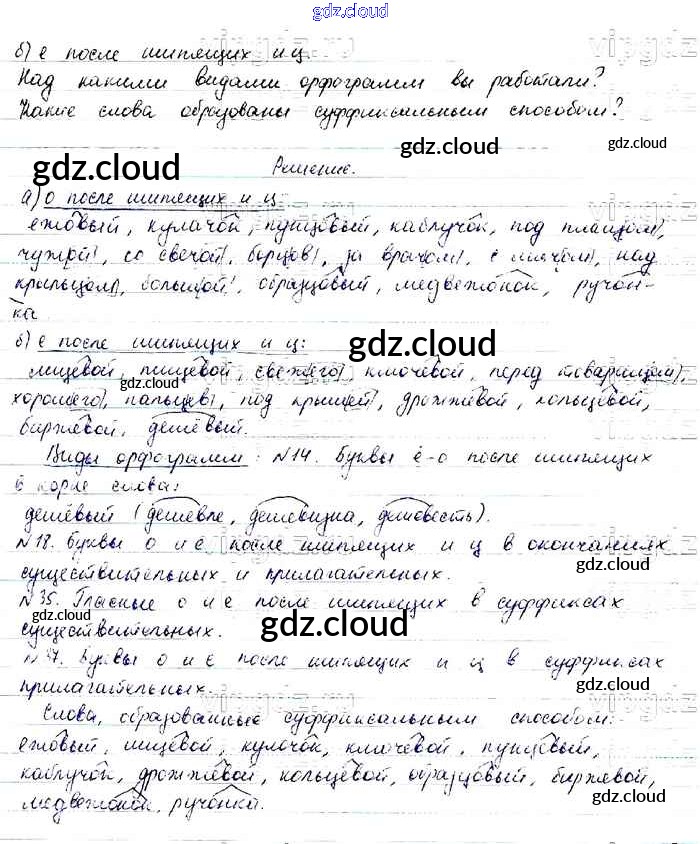 gdz.cloud
б) е после шипящих и ц.
Над какими видами орфограмм вы работали?
Какие слова образованы суффиксальным способом?
gdz.cloud
gdz.cloud
Решение.
а) о после шипящих и ц:
ежовый, кулачок, пунцовый, каблучок, под плащом,
gdz.cloud
чужой, со свечой, борцов, за врачом, с мячом, над
крыльцом, большой, образцовый, медвежонок, ручон-
ка.
б) е после шипящих и ц:
gdz.cloud
лицевой, пищевой, свежего, ключевой, перед товарищем,
gdz.cloud
хорошего, пальцев, под крышей, дрожжевой, кольцевой,
биржевой, дешёвый.
Виды орфограмм: №14. Буквы ё-о после шипящих
в корне слова:
дешёвый (дешевле, дешевизна,
№18. Буквы о и е после шипящих и ц в окончаниях
gdz.cloud
существительных и прилагательных.
№35. Гласные о и е после шипящих в суффиксах
gdz.cloud
gdz.cloud
существительных.
Буквы о и е после шипящих и ц в суффиксах
прилагательных.
gdz.cloud
gdz.cloud
Слова, образованные суффиксальным способом:
ежовый, лицевой, кулачок, ключевой, пунцовый,
gdz.cloud
каблучок, дрожжевой, кольцевой, образцовый, биржевой,
медвежонок, ручонка.
gdz.cloud
gdz.cloud